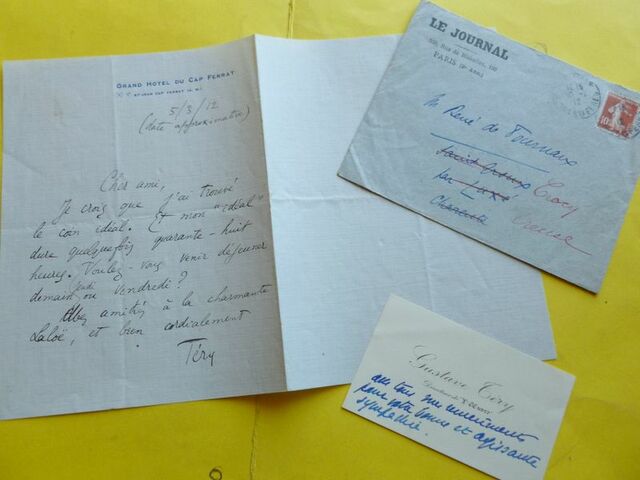 GRAND HOTEL DU CAP FERRAT
ST JEAN CAP FERRAT (A. M.)
5/3/12
(date approximative)
Cher ami,
Je crois que j'ai trouvé
le coin idéal. Et mon "idéal"
dure quelquefois quarante-huit
heures. Voulez-vous venir déjeuner
demain jeudi ou vendredi ?
Mes amitiés à la charmante
Laloë, et bien cordialement
Téry
LE JOURNAL
Rue de Richelieu, 100
PARIS (2e Arrt)
M René de
par
Charente
Crocq
Creuse
10
Gustave Téry
avec tous mes remerciements
pour votre bonne et agissante
sympathie.